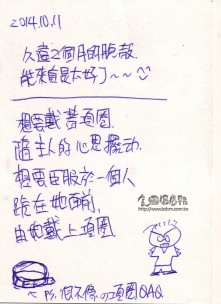 2014.10.11
久違2個月的脫殼
能來真是太好了~~
想要戴著項圈
隨主人的心思擺動
想要臣服於一個人
跪在她面前,
由她戴上項圈
www.bdsm.com.tw
←PS.很不像の項圈QAQ